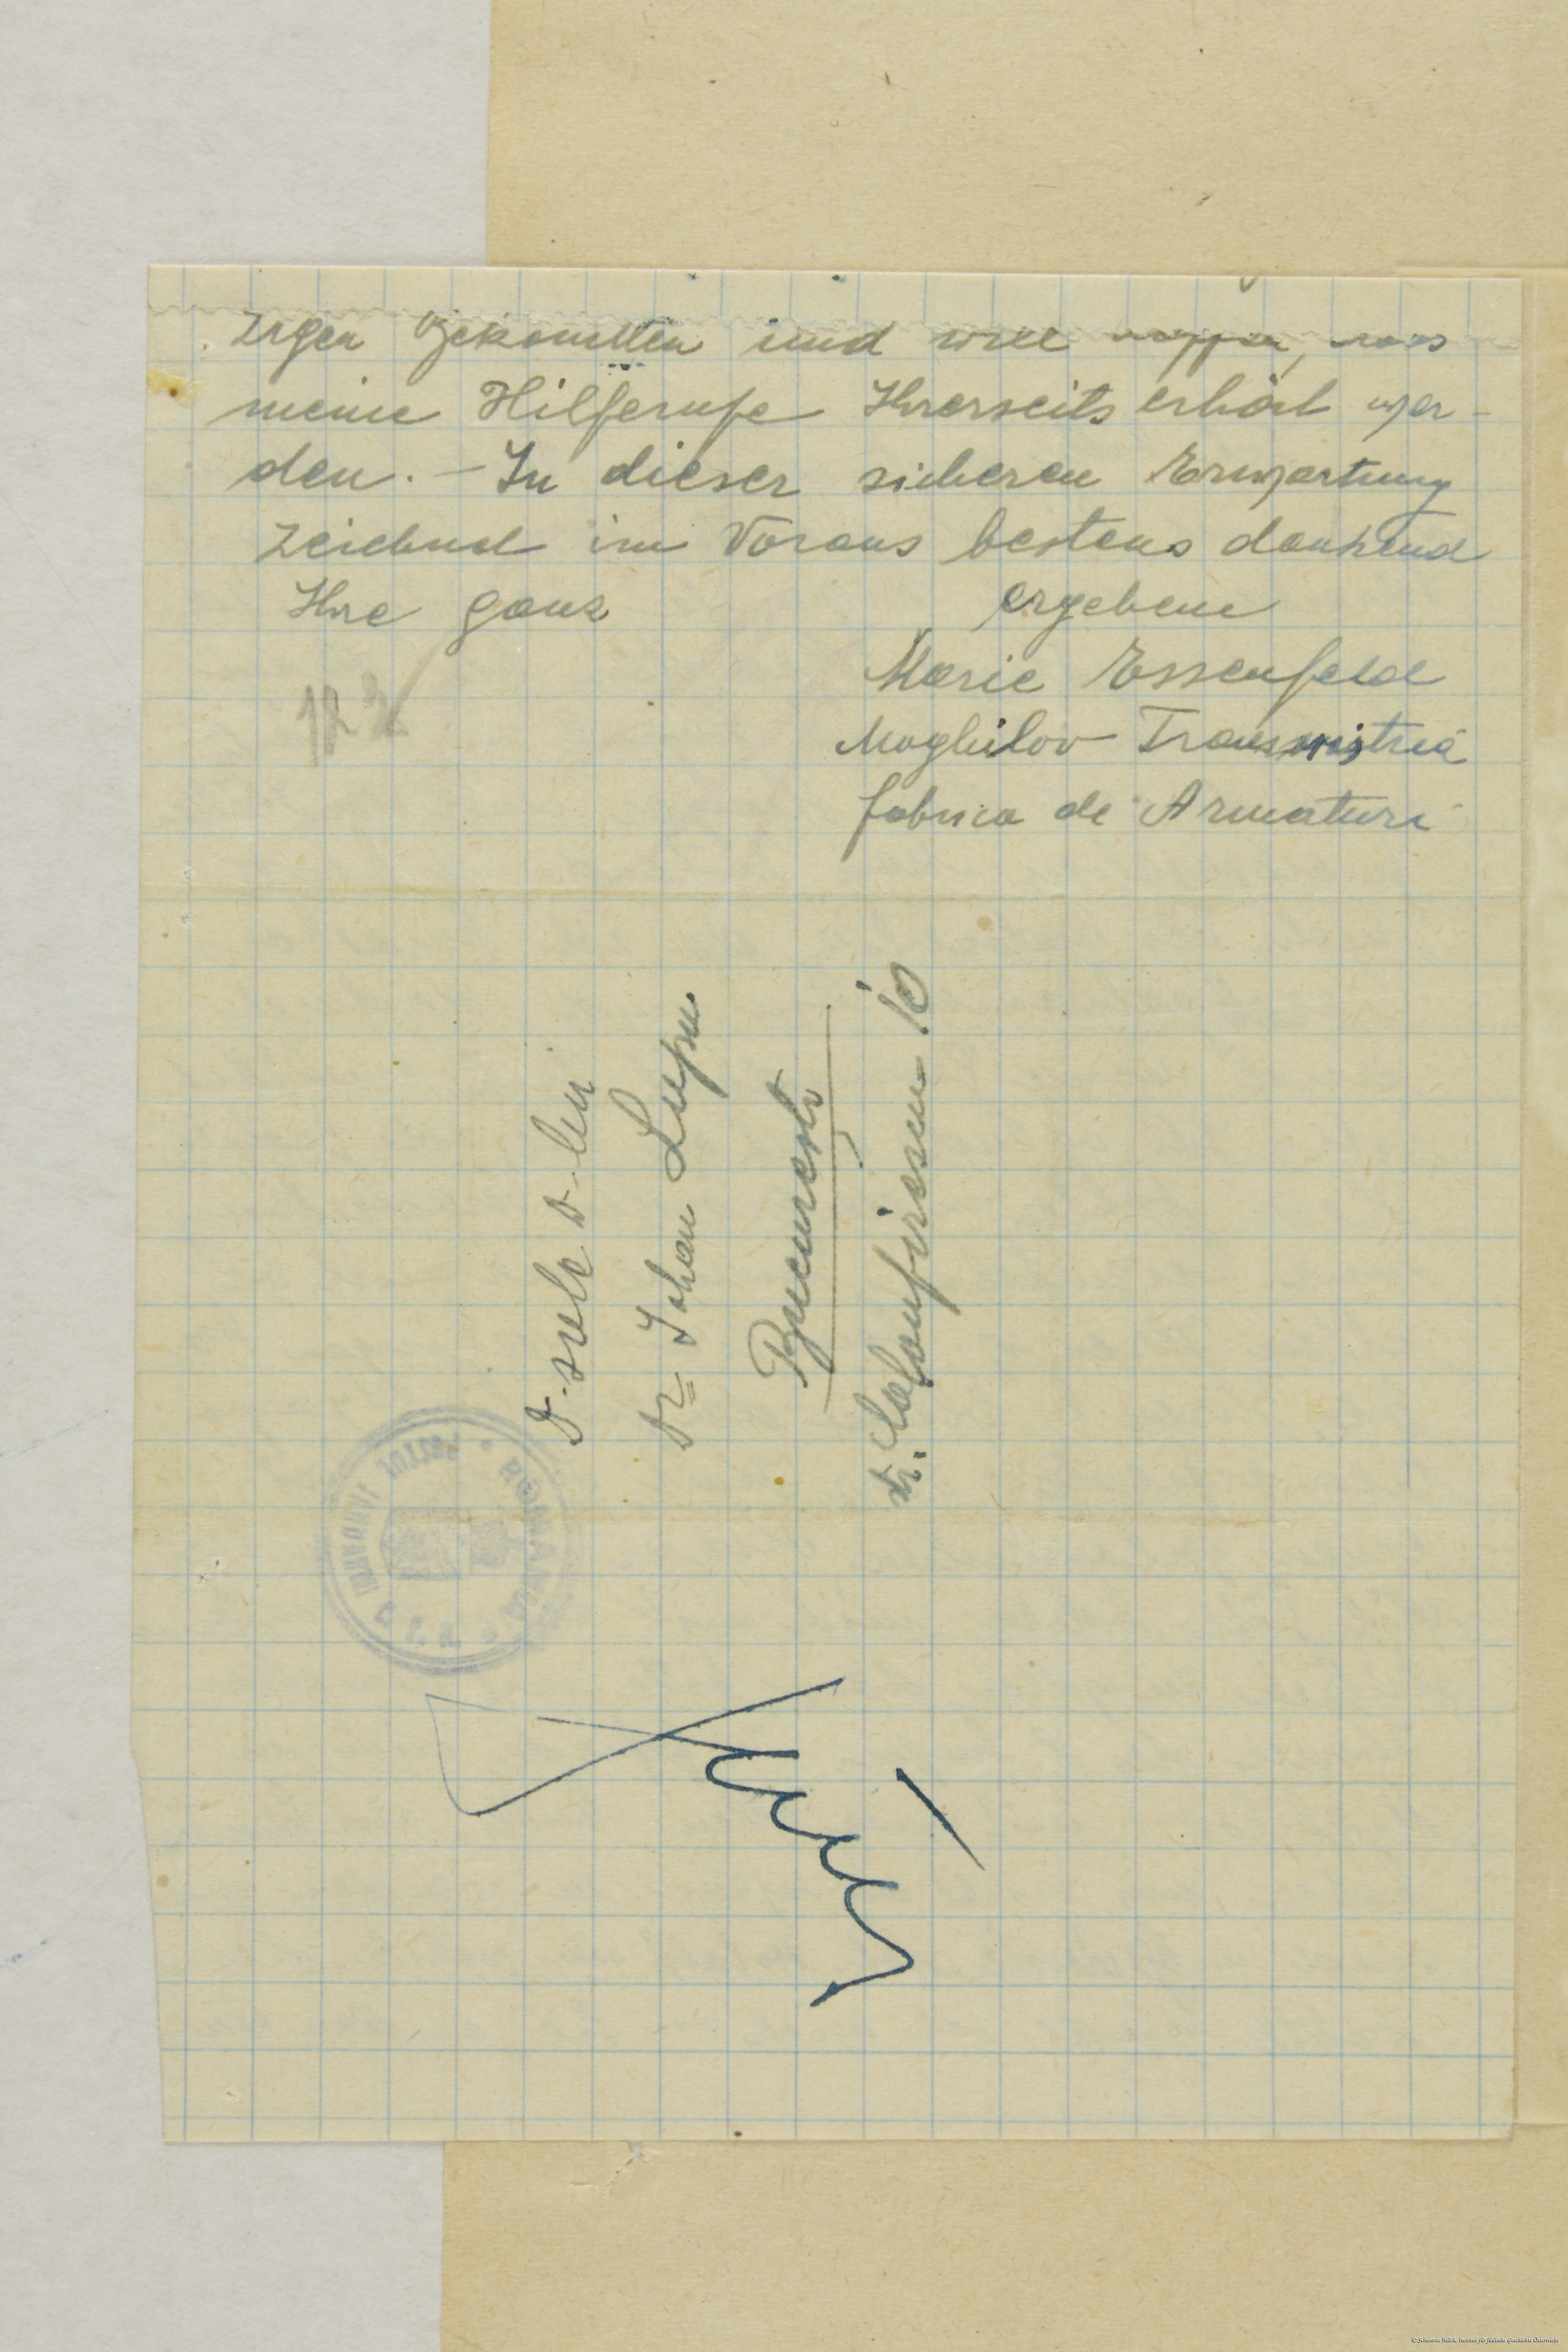 zigen Bekannten und will hoffen, dass
meine Hilferufe Ihrerseits erhört wer-
den. – In dieser sicheren Erwartung
zeichnet im Voraus bestens dankend
Ihre ganz ergebene
Marie Essenfeld
Moghilov Transnistria
fabrica de Armaturi
122
D-sale D-lui
Dr Johan Lupu
București
Str. Calonfirescu 10
ROMANIA